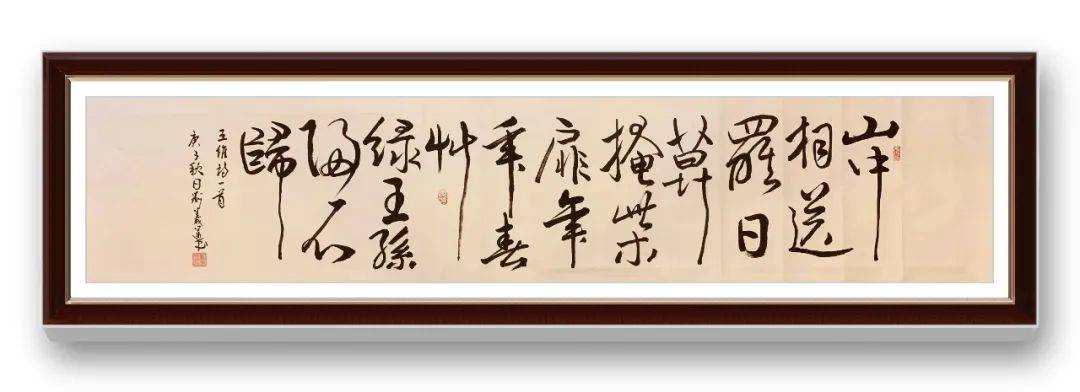 山中
相送
罷日
莫
掩柴
扉年
秊春
艸
绿王孫
歸不
歸
王維詩一首
庚子秋日